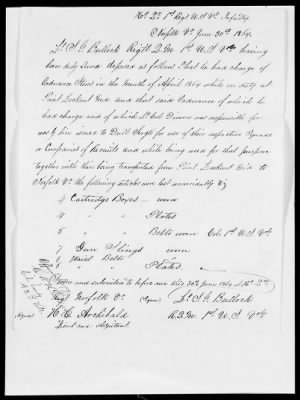 Hd Qrs 1st Regt U.S. Vol Infantry
Norfolk Va June 30th 1864.
Lt S. G. Bullock Regtl Q.M. 1st U.S. Vols having
been duly sworn deposes as follows That he had charge of
Ordnance Stores in the month of April 1864 while on duty at
Point Lookout Md and that said Ordnance of which he
had charge and of which Lt Col Dimon was responsible for
was by him issued to Drill Sergts for use of their respective Squads
a Companies of Recruits and while being used for that purpose
together with their being transported from Point Lookout Md to
Norfolk Va the following articles were lost unavoidably viz
4 Cartridge Boxes – worn
4 " " Plates
5 " " Belts worn Col. 1st U.S. Vols
7 Gun Slings worn
6 Waist Belts "
6 " " Plates "
Sworn and subscribed to before me this 30th June 1864 at Hd Qrs
Regt Norfolk Va (Signed) Lt S. G. Bullock
(Signed) H. C. Archibald R.Q.M. 1st U.S. Vols
Lieut and Adjutant